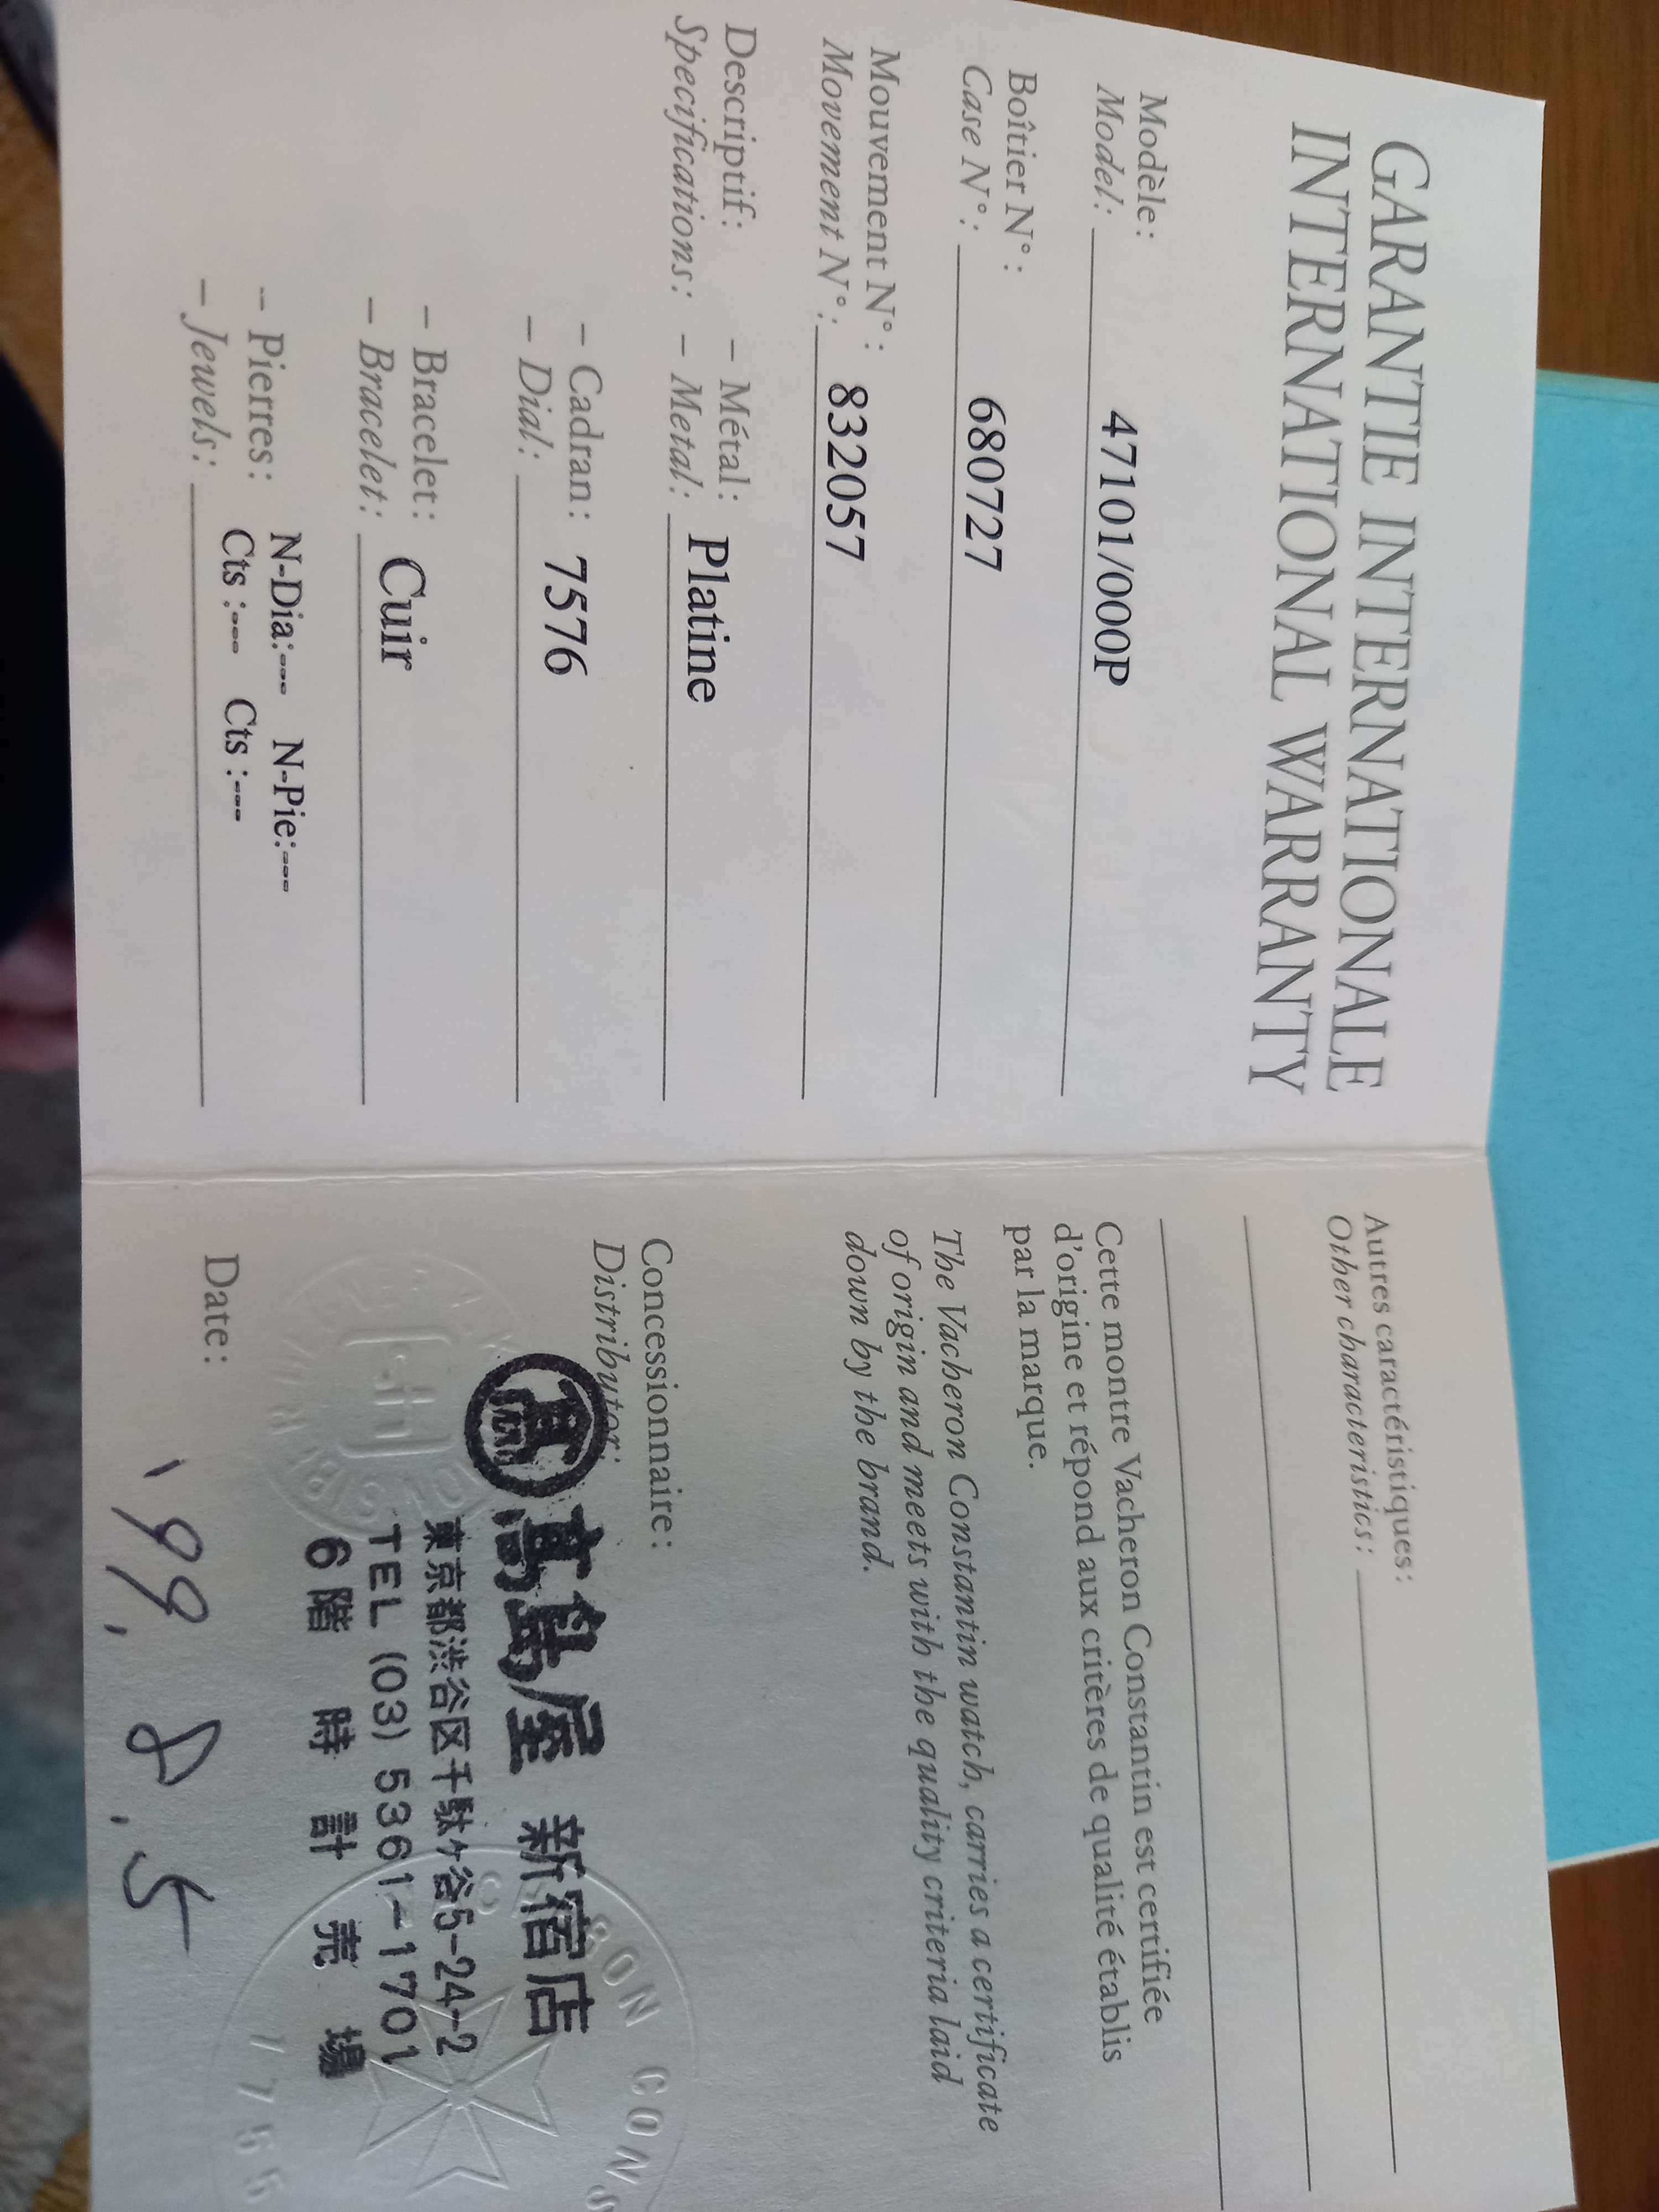 GARANTIE INTERNATIONALE
INTERNATIONAL WARRANTY
Modèle:
Model: 47101/000P
Boîtier N°:
Case N°: 680727
Mouvement N°:
Movement N°: 832057
Descriptif: – Métal:
Specifications: – Metal: Platine
– Cadran:
– Dial: 7576
– Bracelet:
– Bracelet: Cuir
– Pierres: N-Dia:--- N-Pie:---
– Jewels: Cts :--- Cts :---
Autres caractéristiques:
Other characteristics:
Cette montre Vacheron Constantin est certifiée
d'origine et répond aux critères de qualité établis
par la marque.
The Vacheron Constantin watch, carries a certificate
of origin and meets with the quality criteria laid
down by the brand.
Concessionnaire:
Distributor:
髙島屋 新宿店
東京都渋谷区千駄ケ谷5-24-2
TEL (03) 5361-1701
6階 時計売場
Date: '99, 8, 5
RON CONS
1755